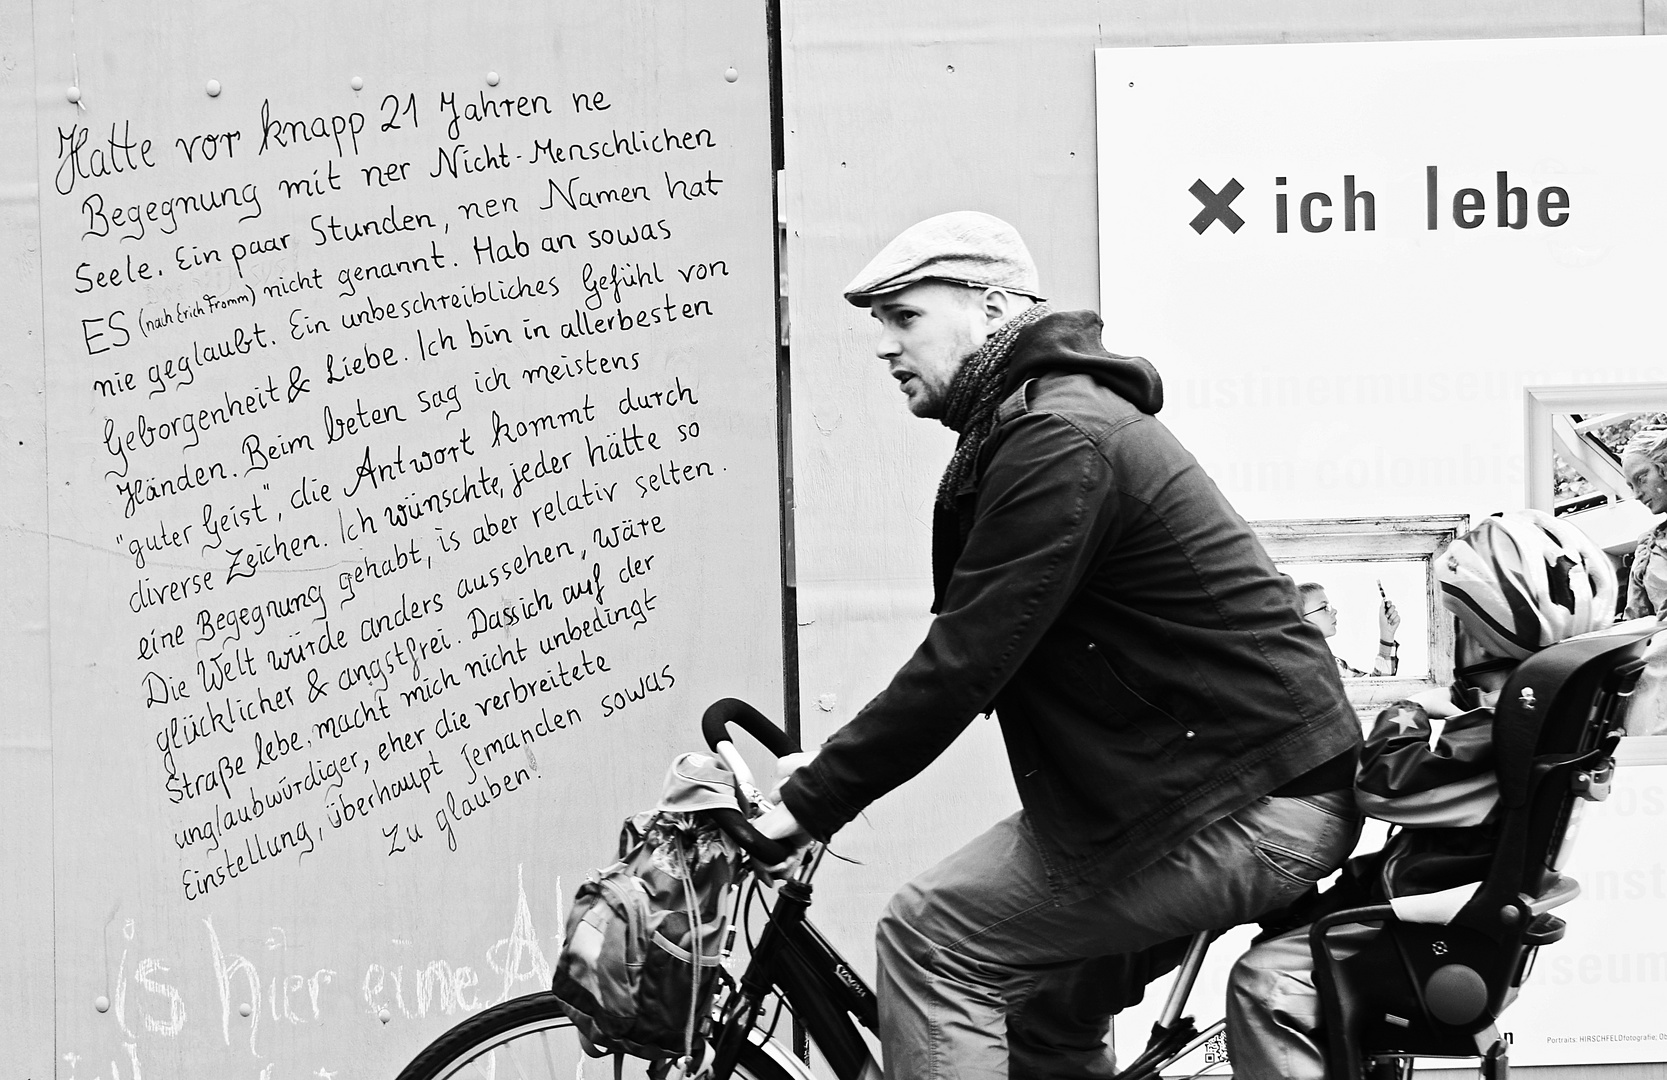 Hatte vor knapp 21 Jahren ne
Begegnung mit ner Nicht-Menschlichen
Seele. Ein paar Stunden, nen Namen hat
ES (nach Erich Fromm) nicht genannt. Hab an sowas
nie geglaubt. Ein unbeschreibliches Gefühl von
Geborgenheit & Liebe. Ich bin in allerbesten
Händen. Beim beten sag ich meistens
"guter Geist", die Antwort kommt durch
diverse Zeichen. Ich wünschte, jeder hätte so
eine Begegnung gehabt, is aber relativ selten.
Die Welt würde anders aussehen, wäre
glücklicher & angstfrei. Dass ich auf der
Straße lebe, macht mich nicht unbedingt
unglaubwürdiger, eher die verbreitete
Einstellung, überhaupt Jemanden sowas
zu glauben!
is hier eine
✖ ich lebe
museum
colombi
museum
Portraits: HIRSCHFELDfotografie,